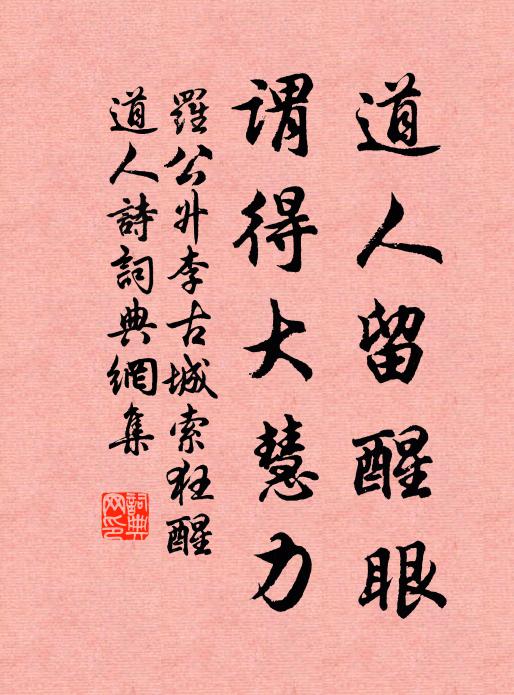 道人留醒眼
谓得大慧力
羅公升李古城索狂醒
道人詩詞典網集
詞典网印